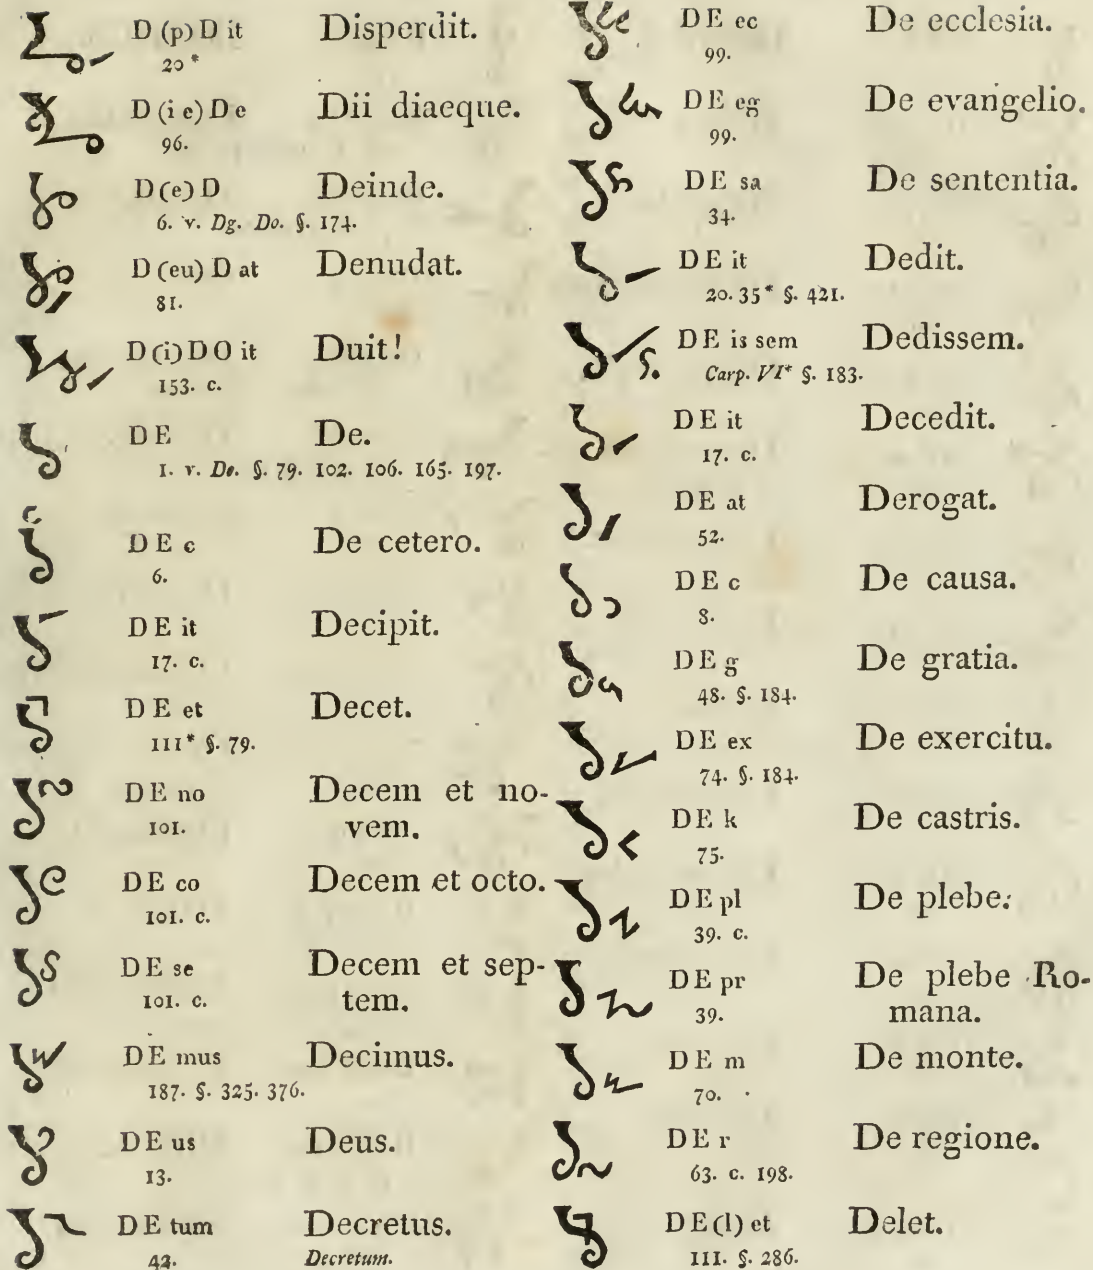 D (p) D it Disperdit.
20 *
D (i e) D e Dii diaeque.
96.
D (e) D Deinde.
6. v. Dg. Do. §. 174.
D (eu) D at Denudat.
81.
D (i) D O it Duit!
153. c.
D E De.
1. v. De. §. 79. 102. 106. 165. 197.
D E c De cetero.
6.
D E it Decipit.
17. c.
D E et Decet.
III* §. 79.
D E no Decem et no-
101. vem.
D E co Decem et octo.
101. c.
D E se Decem et sep-
101. c. tem.
D E mus Decimus.
187. §. 325. 376.
D E us Deus.
13.
D E tum Decretus.
42. Decretum.
D E ec De ecclesia.
99.
D E eg De evangelio.
99.
D E sa De sententia.
34.
D E it Dedit.
20. 35* §. 421.
D E is sem Dedissem.
Carp. VI* §. 183.
D E it Decedit.
17. c.
D E at Derogat.
52.
D E c De causa.
8.
D E g De gratia.
48. §. 184.
D E ex De exercitu.
74. §. 184.
D E k De castris.
75.
D E pl De plebe.
39. c.
D E pr De plebe Ro-
39. mana.
D E m De monte.
70.
D E r De regione.
63. c. 198.
D E (l) et Delet.
III. §. 286.